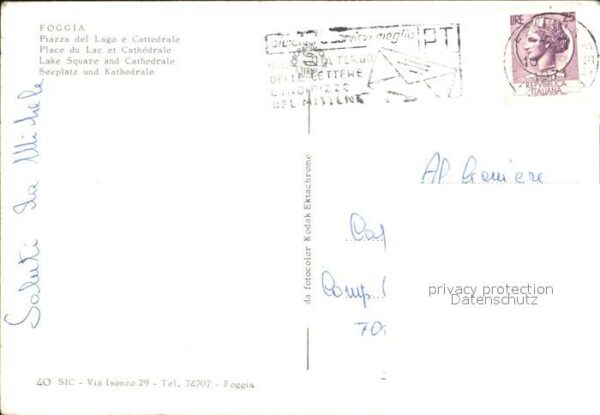 FOGGIA
Piazza del Lago e Cattedrale
Place du Lac et Cathédrale
Lake Square and Cathedrale
Seeplatz und Kathedrale
servirvi meglio
PT
DELLE LETTERE
DEL MITTENTE
LIRE 25
REPUBBLICA
ITALIANA
Saluti da Michele
da fotocolor Kodak Ektachrome
Al
Comp.
privacy protection
Datenschutz
40 SIC - Via Isonzo 29 - Tel. 74707 - Foggia